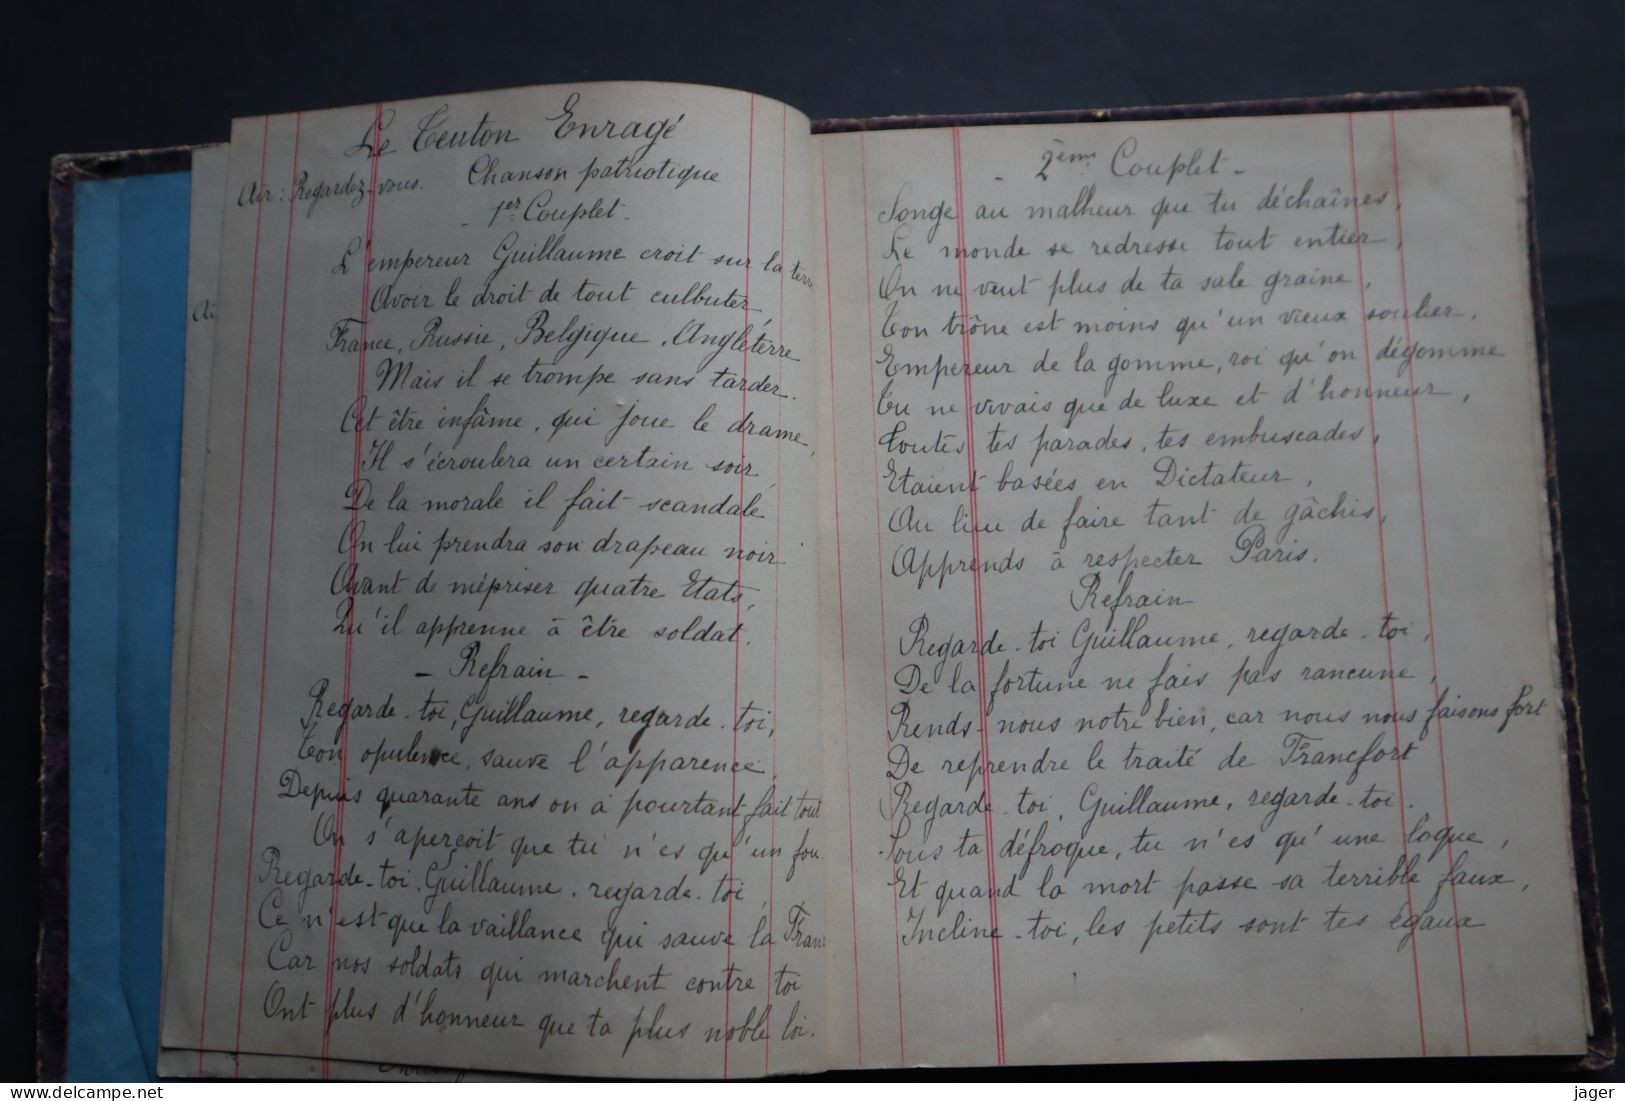 Le Teuton Enragé
Air : Regardez-vous. Chanson patriotique
- 1er Couplet -
L'empereur Guillaume croit sur la terre
Avoir le droit de tout culbuter,
France, Russie, Belgique, Angléterre
Mais il se trompe sans tarder.
Cet être infâme, qui joue le drame,
Il s'écroulera un certain soir
De la morale il fait scandale
On lui prendra son drapeau noir
Avant de mépriser quatre Etats,
Qu'il apprenne à être soldat.
- Refrain -
Regarde-toi, Guillaume, regarde-toi,
Ton opulence, sauve l'apparence,
Depuis quarante ans on a pourtant fait tout
On s'aperçoit que tu n'es qu'un fou
Regarde-toi, Guillaume, regarde-toi,
Ce n'est que la vaillance qui sauve la Fran
Car nos soldats qui marchent contre toi
Ont plus d'honneur que ta plus noble loi.
Ai
- 2ème Couplet -
Songe au malheur que tu déchaînes,
Le monde se redresse tout entier,
On ne veut plus de ta sale graine,
Ton trône est moins qu'un vieux soulier,
Empereur de la gomme, roi qu'on dégomme
Tu ne vivais que de luxe et d'honneur,
Toutes tes parades, tes embuscades,
Etaient basées en Dictateur,
Au lieu de faire tant de gâchis,
Apprends à respecter Paris.
Refrain
Regarde-toi Guillaume, regarde-toi,
De la fortune ne fais pas rancune,
Rends-nous notre bien, car nous nous faisons fort
De reprendre le traité de Francfort
Regarde-toi, Guillaume, regarde-toi.
Sous ta défroque, tu n'es qu'une loque,
Et quand la mort passe sa terrible faux,
Incline-toi, les petits sont tes égaux
www.delcampe.net
jager